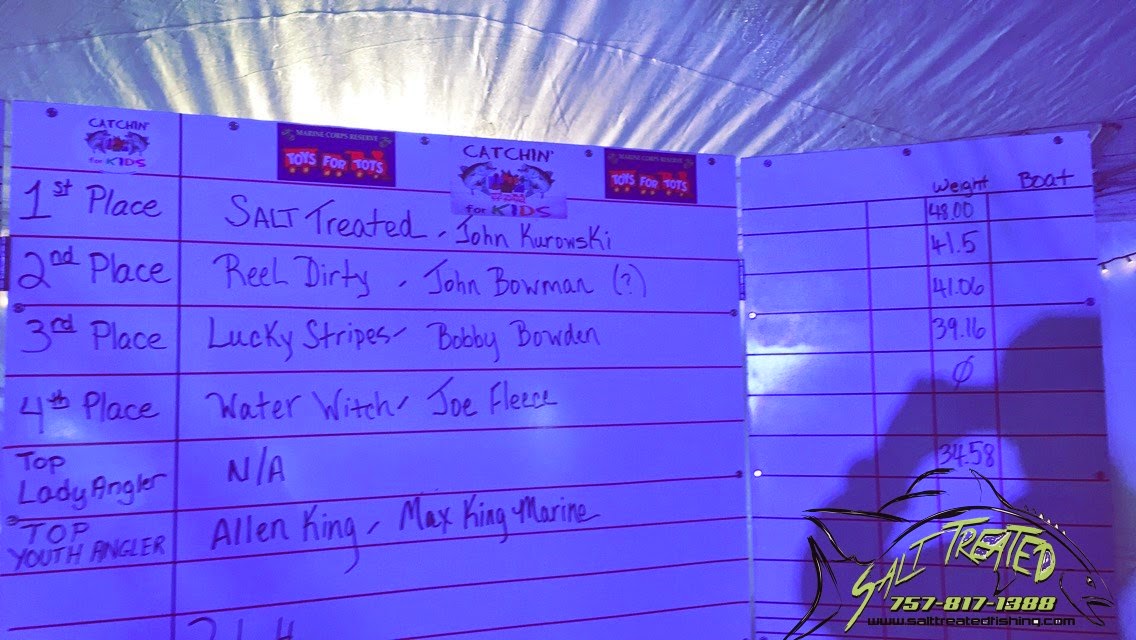 CATCHIN'
for KIDS
MARINE CORPS RESERVE
TOYS FOR TOTS
CATCHIN'
for KIDS
MARINE CORPS RESERVE
TOYS FOR TOTS
Weight Boat
1st Place SALT Treated - John Kurowski 48.00
2nd Place Reel Dirty - John Bowman (?) 41.5
41.06
3rd Place Lucky Stripes - Bobby Bowden 39.16
4th Place Water Witch - Joe Fleece Ø
Top Lady Angler N/A 34.58
TOP YOUTH ANGLER Allen King - Max King Marine
SALT TREATED
757-817-1388
www.salttreatedfishing.com